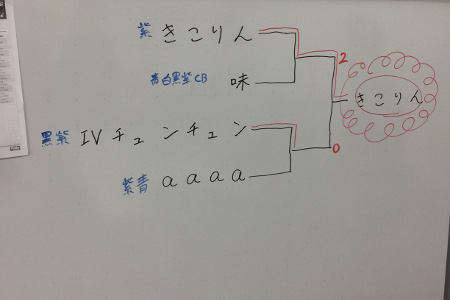 紫 きこりん
青白黒紫CB 味
2
きこりん
黒紫 IVチュンチュン
0
紫青 aaaa